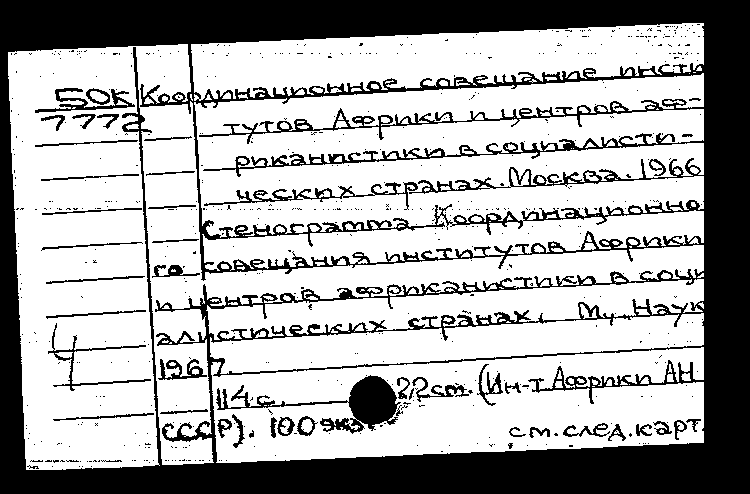 50К Координационное совещание инсти
7772 тутов Африки и центров аф-
риканистики в социалисти-
ческих странах. Москва. 1966
Стенограмма Координационно
го совещания институтов Африки
и центров африканистики в соци
алистических странах. М., Наук
1967.
114 с. 22 см. (Ин-т Африки АН
СССР). 100 экз.
см. след. карт.
4